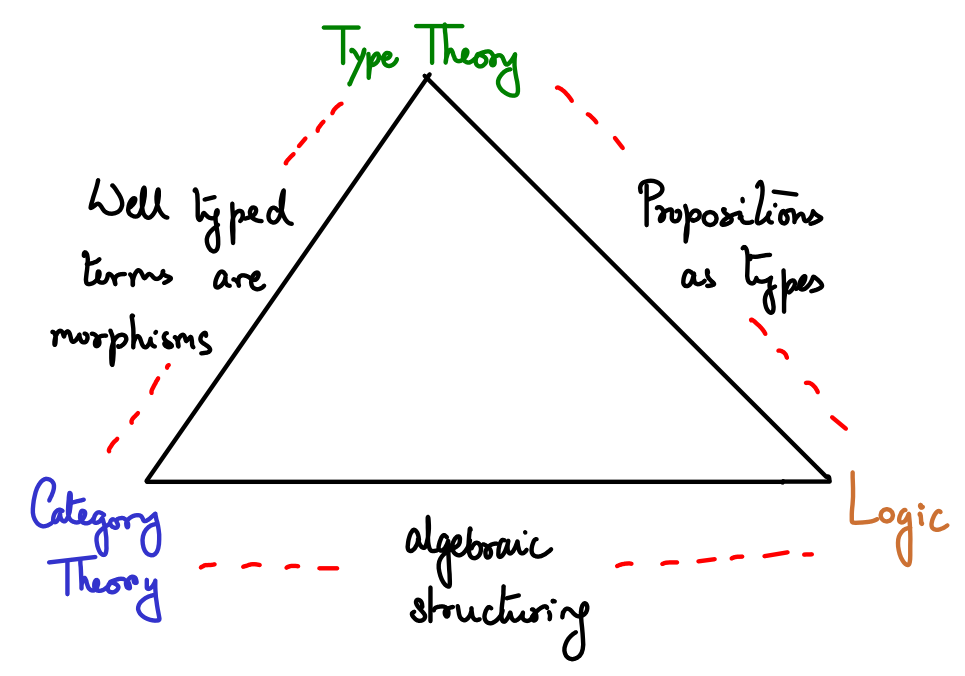 Type Theory
Well typed
terms are
morphisms
Propositions
as types
Category
Theory
Logic
algebraic
structuring